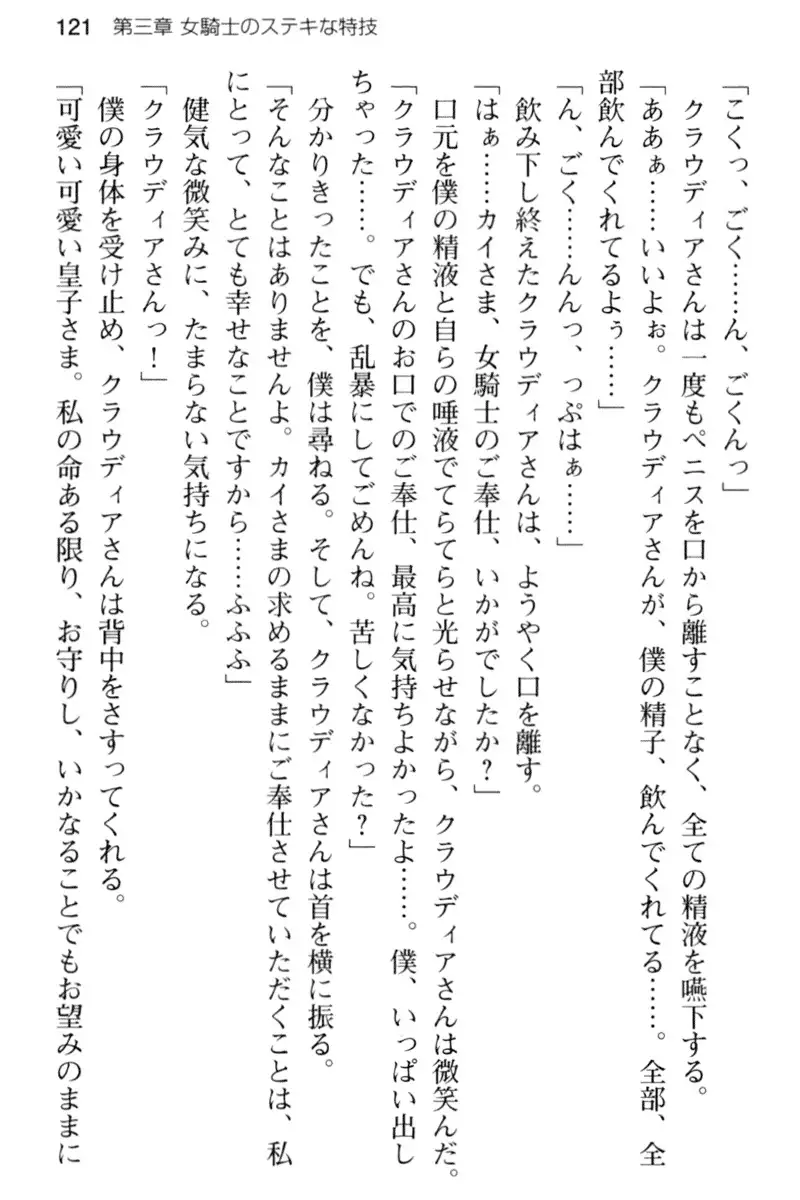 121 第三章 女騎士のステキな特技
「こくっ、ごく……ん、ごくんっ」
クラウディアさんは一度もペニスを口から離すことなく、全ての精液を嚥下する。
「ああぁ……いいよぉ。クラウディアさんが、僕の精子、飲んでくれてる……。全部、全
部飲んでくれてるよぅ……」
「ん、ごく……んんっ、っぷはぁ……」
飲み下し終えたクラウディアさんは、ようやく口を離す。
「はぁ……カイさま、女騎士のご奉仕、いかがでしたか？」
口元を僕の精液と自らの唾液でてらてらと光らせながら、クラウディアさんは微笑んだ。
「クラウディアさんのお口でのご奉仕、最高に気持ちよかったよ……。僕、いっぱい出し
ちゃった……。でも、乱暴にしてごめんね。苦しくなかった？」
分かりきったことを、僕は尋ねる。そして、クラウディアさんは首を横に振る。
「そんなことはありませんよ。カイさまの求めるままにご奉仕させていただくことは、私
にとって、とても幸せなことですから……ふふふ」
健気な微笑みに、たまらない気持ちになる。
「クラウディアさんっ！」
僕の身体を受け止め、クラウディアさんは背中をさすってくれる。
「可愛い可愛い皇子さま。私の命ある限り、お守りし、いかなることでもお望みのままに